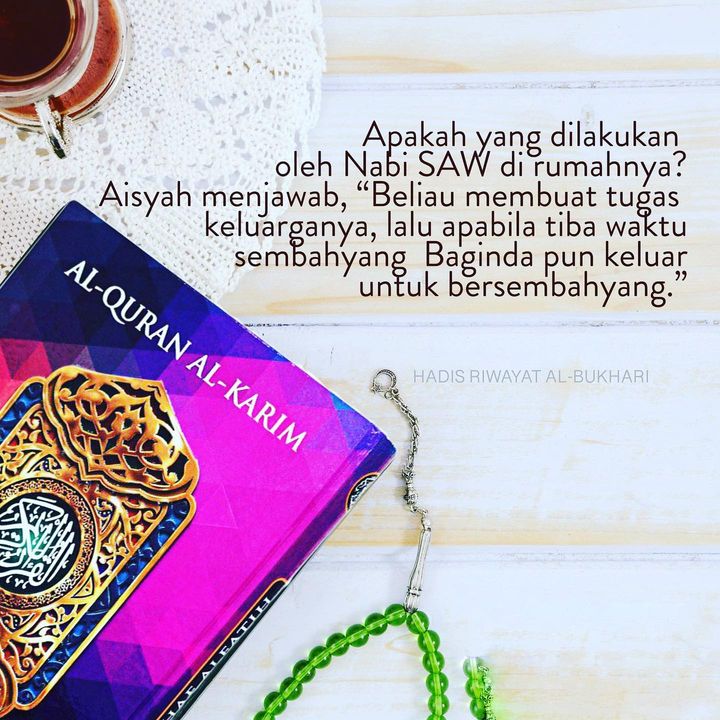 Apakah yang dilakukan
oleh Nabi SAW di rumahnya?
Aisyah menjawab, “Beliau membuat tugas
keluarganya, lalu apabila tiba waktu
sembahyang Baginda pun keluar
untuk bersembahyang.”
HADIS RIWAYAT AL-BUKHARI
AL-QURAN AL-KARIM